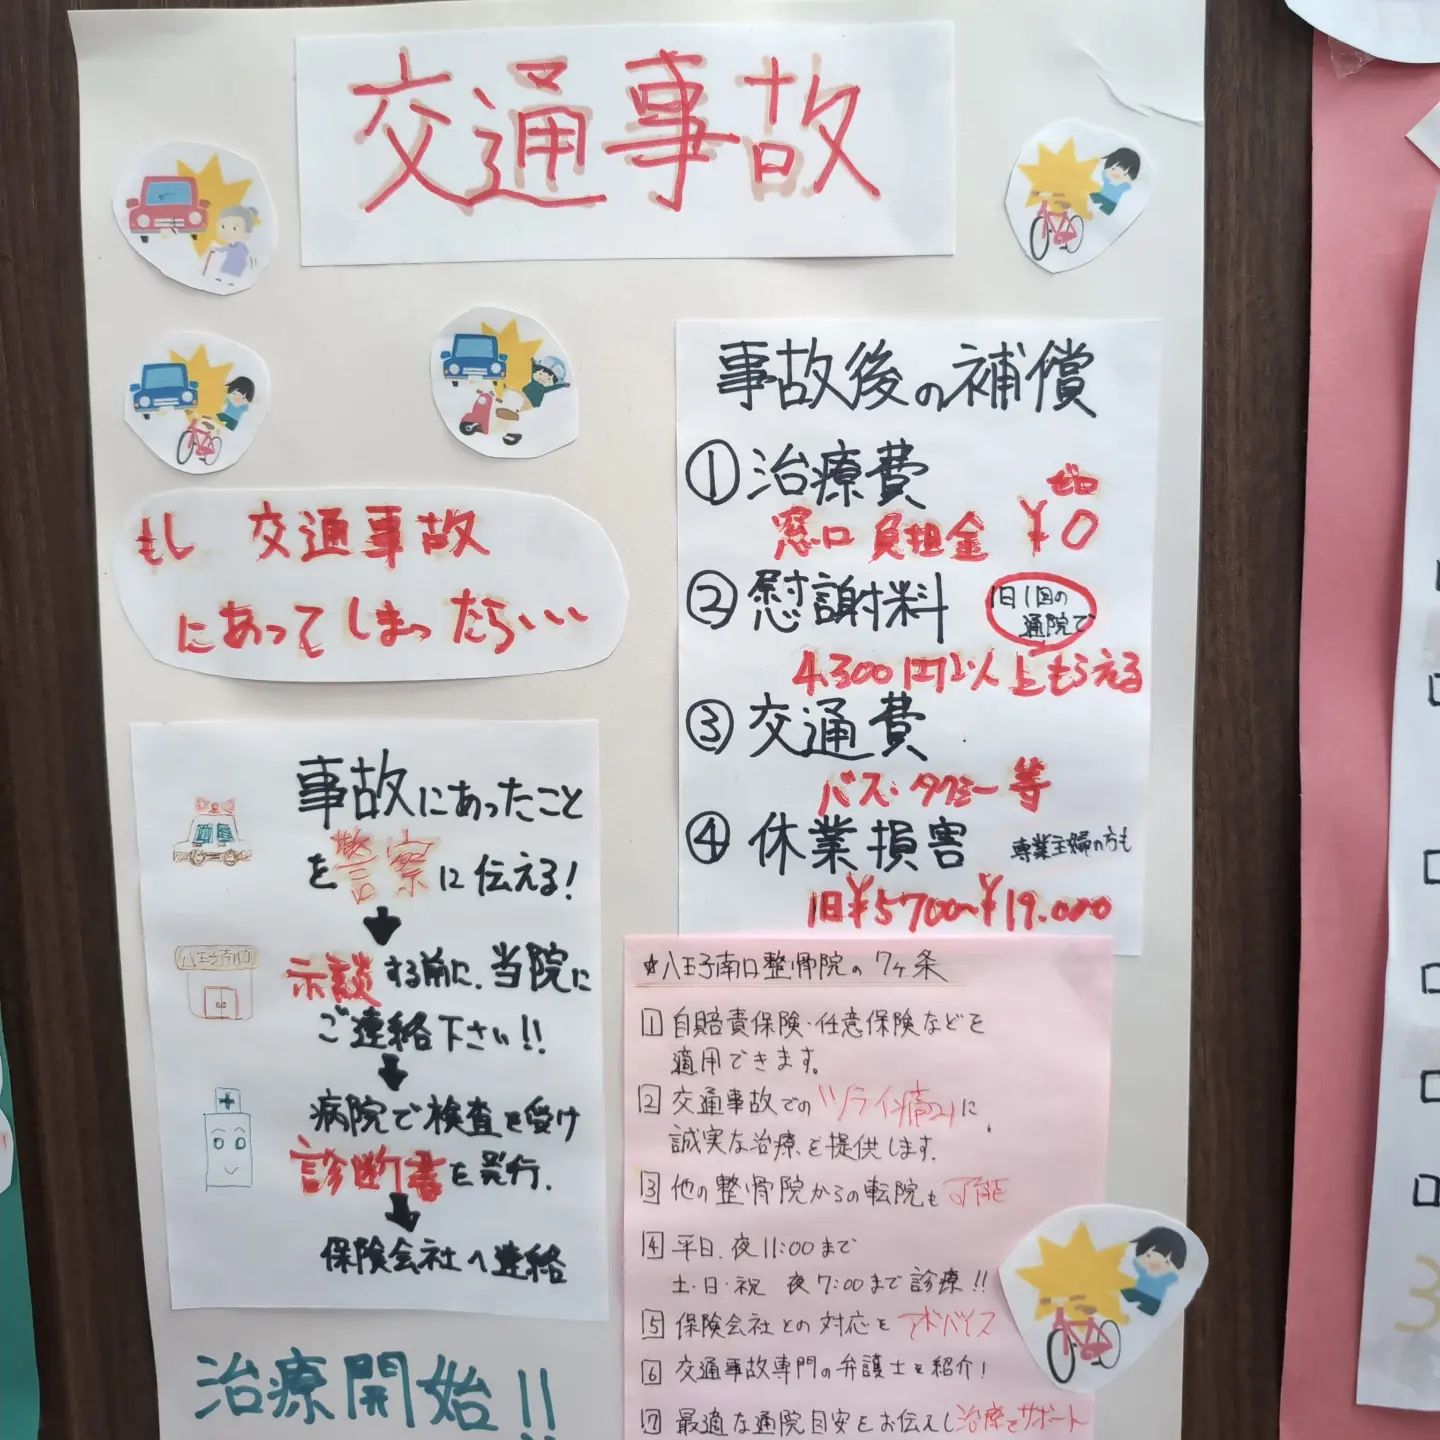 交通事故
もし 交通事故
にあってしまったら・・・
事故後の補償
①治療費
ゼロ
窓口負担金 ¥0
②慰謝料
1日1回の
通院で
4.300円以上もらえる
③交通費
バス・タクシー等
④休業損害 専業主婦の方も
1日¥5700〜¥19.000
事故にあったこと
を警察に伝える!
示談する前に、当院に
ご連絡下さい!!
八王子南口
病院で検査を受け
診断書を発行.
保険会社へ連絡
治療開始!!
☆八王子南口整骨院の7ヶ条
1 自賠責保険・任意保険などを
適用できます。
2 交通事故での"ツライ痛み"に、
誠実な治療を提供します。
3 他の整骨院からの転院も可能
4 平日.夜11:00まで
土・日・祝 夜7:00まで診療!!
5 保険会社との対応をアドバイス
6 交通事故専門の弁護士を紹介!
7 最適な通院目安をお伝えし治療をサポート